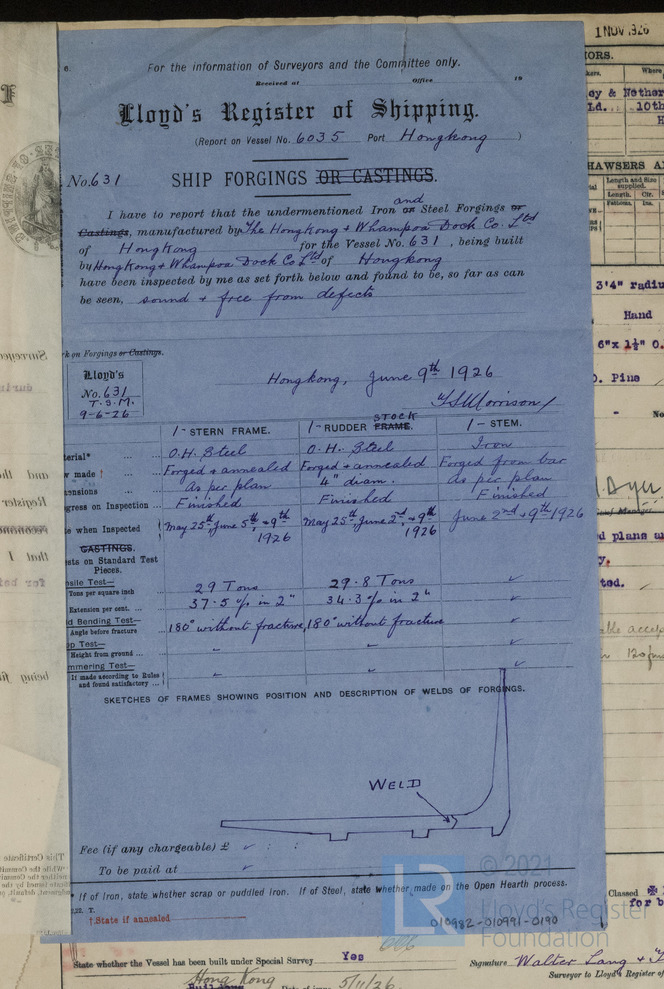 For the information of Surveyors and the Committee only.
Received at Office 19
Lloyd's Register of Shipping.
(Report on Vessel No. 6035 Port Hongkong )
No. 631
SHIP FORGINGS OR CASTINGS.
and
I have to report that the undermentioned Iron or Steel Forgings or
Castings, manufactured by The Hongkong & Whampoa Dock Co. Ltd
of Hongkong for the Vessel No. 631, being built
by Hongkong & Whampoa Dock Co Ltd of Hongkong
have been inspected by me as set forth below and found to be, so far as can
be seen, sound & free from defects
k on Forgings or Castings.
Lloyd's
No. 631
T.S.M.
9-6-26
Hongkong, June 9th 1926
T S Morrison
STOCK
1- STERN FRAME. 1- RUDDER FRAME. 1- STEM.
terial* ... ... O.H. Steel O.H. Steel Iron
w made † ... ... Forged & annealed Forged & annealed Forged from bar
ensions ... ... As per plan 4" diam. As per plan
gress on Inspection ... Finished Finished Finished
e when Inspected May 25th June 5th & 9th 1926 May 25th June 2nd & 9th 1926 June 2nd & 9th 1926
CASTINGS.
sts on Standard Test
Pieces.
nsile Test—
Tons per square inch 29 Tons 29.8 Tons ✓
Extension per cent. ... 37.5 % in 2" 34.3 % in 2" ✓
d Bending Test—
Angle before fracture 180° without fracture, 180° without fracture ✓
op Test—
Height from ground ...
mmering Test—
If made according to Rules
and found satisfactory ...
SKETCHES OF FRAMES SHOWING POSITION AND DESCRIPTION OF WELDS OF FORGINGS.
WELD
Fee (if any chargeable) £ ✓ : :
To be paid at ✓
* If of Iron, state whether scrap or puddled iron. If of Steel, state whether made on the Open Hearth process.
† State if annealed
010982-010991-0190
© 2021
LR
Lloyd's Register
Foundation
1 NOV 1926
ORS.
Where
ey & Nether
Ld. 10th
H
HAWSERS A
Length and Size
supplied.
Length. Cir.
3'4" radiu
Hand
6"x 1½" O.
O. Pine
No
d plans a
y.
ted.
Classed
for b
State whether the Vessel has been built under Special Survey Yes
Hong Kong
Date of issue 5/11/26.
Signature Walter Lang
Surveyor to Lloyd's Register of